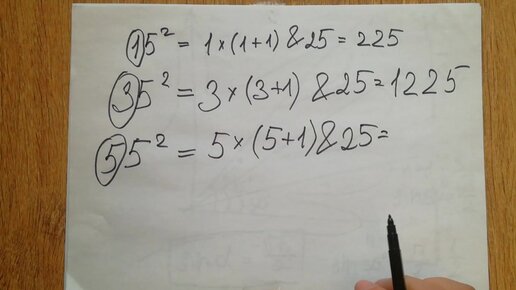 15² = 1×(1+1) &25 = 225
35² = 3×(3+1) &25 = 1225
55² = 5×(5+1)&25 =